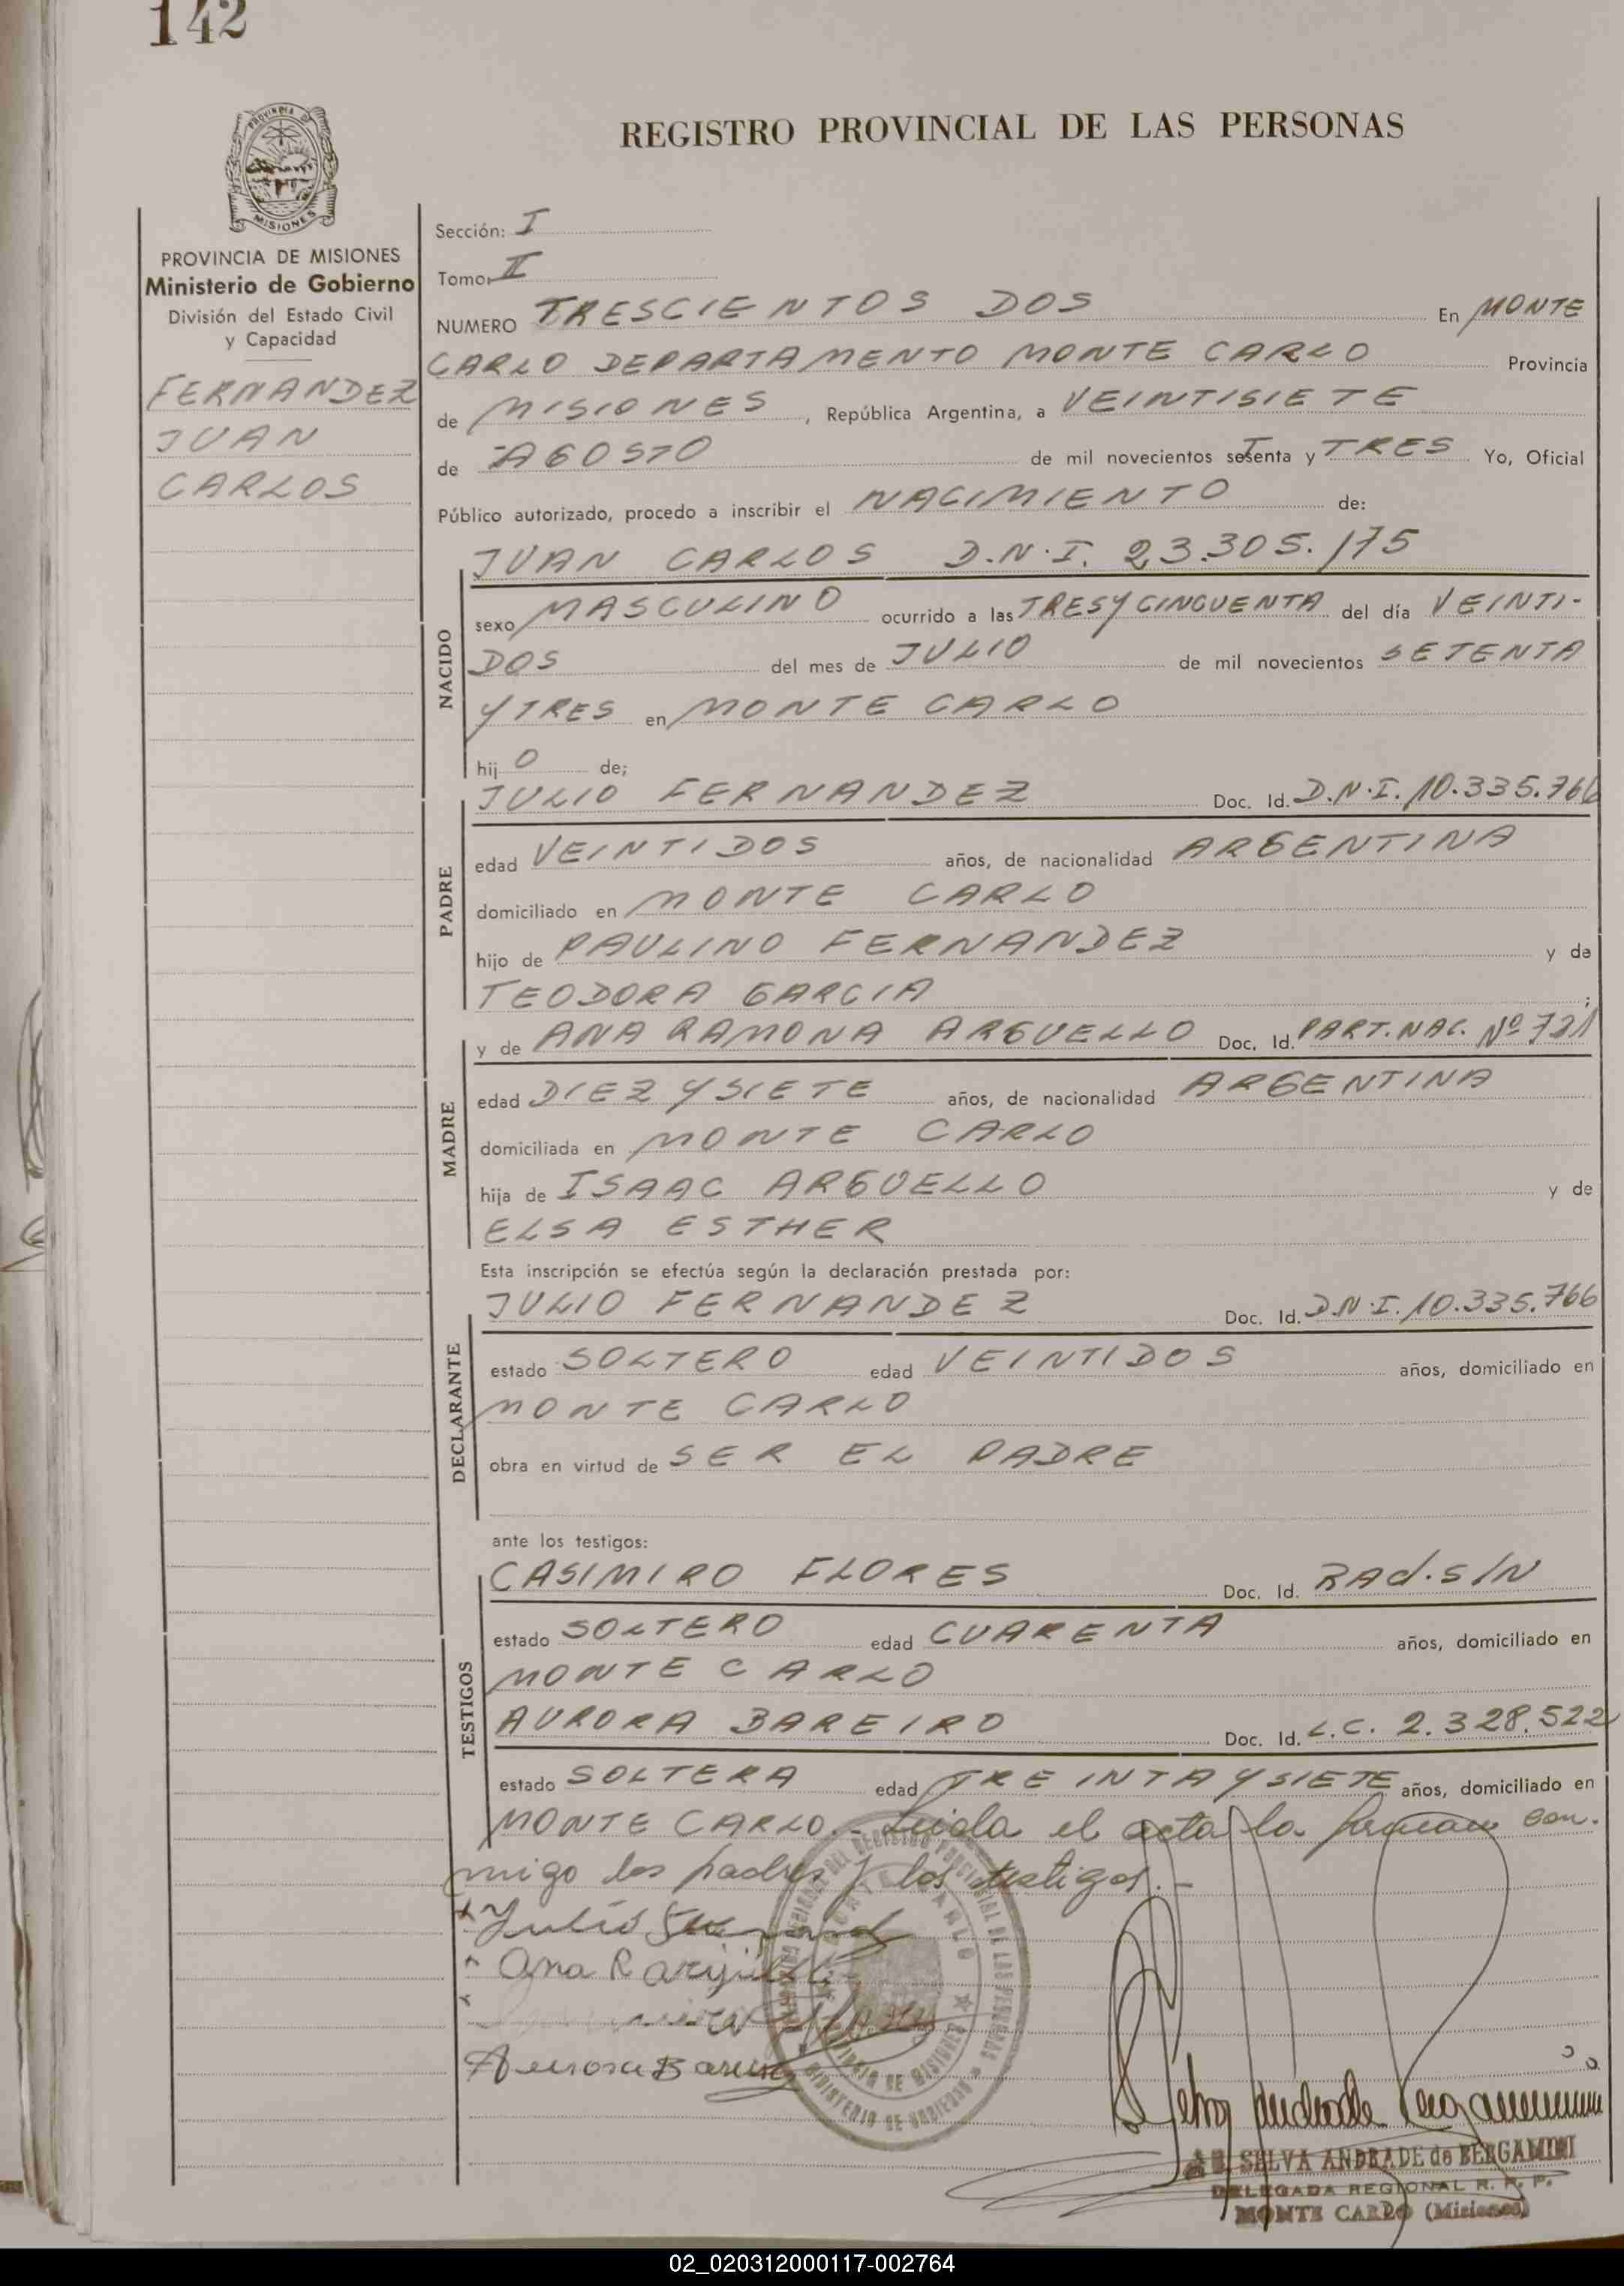 142
PROVINCIA DE MISIONES
REGISTRO PROVINCIAL DE LAS PERSONAS
PROVINCIA DE MISIONES
Ministerio de Gobierno
División del Estado Civil
y Capacidad
FERNANDEZ
JUAN
CARLOS
Sección: I
Tomo: II
NUMERO TRESCIENTOS DOS En MONTE
CARLO DEPARTAMENTO MONTE CARLO Provincia
de MISIONES, República Argentina, a VEINTISIETE
de AGOSTO de mil novecientos setenta y TRES Yo, Oficial
Público autorizado, procedo a inscribir el NACIMIENTO de:
NACIDO
JUAN CARLOS D.N.I. 23.305.175
sexo MASCULINO ocurrido a las TRES Y CINCUENTA del día VEINTI-
DOS del mes de JULIO de mil novecientos SETENTA
Y TRES en MONTE CARLO
hij O de;
PADRE
JULIO FERNANDEZ Doc. Id. D.N.I. 10.335.766
edad VEINTIDOS años, de nacionalidad ARGENTINA
domiciliado en MONTE CARLO
hijo de PAULINO FERNANDEZ y de
TEODORA GARCIA ;
MADRE
y de ANA RAMONA ARGUELLO Doc. Id. PART. NAC. Nº 721
edad DIEZ Y SIETE años, de nacionalidad ARGENTINA
domiciliada en MONTE CARLO
hija de ISAAC ARGUELLO y de
ELSA ESTHER
Esta inscripción se efectúa según la declaración prestada por:
DECLARANTE
JULIO FERNANDEZ Doc. Id. D.N.I. 10.335.766
estado SOLTERO edad VEINTIDOS años, domiciliado en
MONTE CARLO
obra en virtud de SER EL PADRE
ante los testigos:
TESTIGOS
CASIMIRO FLORES Doc. Id. RAd. S/N
estado SOLTERO edad CUARENTA años, domiciliado en
MONTE CARLO
AURORA BAREIRO Doc. Id. L.C. 2.328.522
estado SOLTERA edad TREINTA Y SIETE años, domiciliado en
MONTE CARLO.- Leida el acta la firman con-
migo los padres y los testigos.-
Julio
Ana R
Aurora
SELVA ANDRADE de BERGAMINI
DELEGADA REGIONAL R. P. P.
MONTE CARLO (Misiones)
02_020312000117-002764